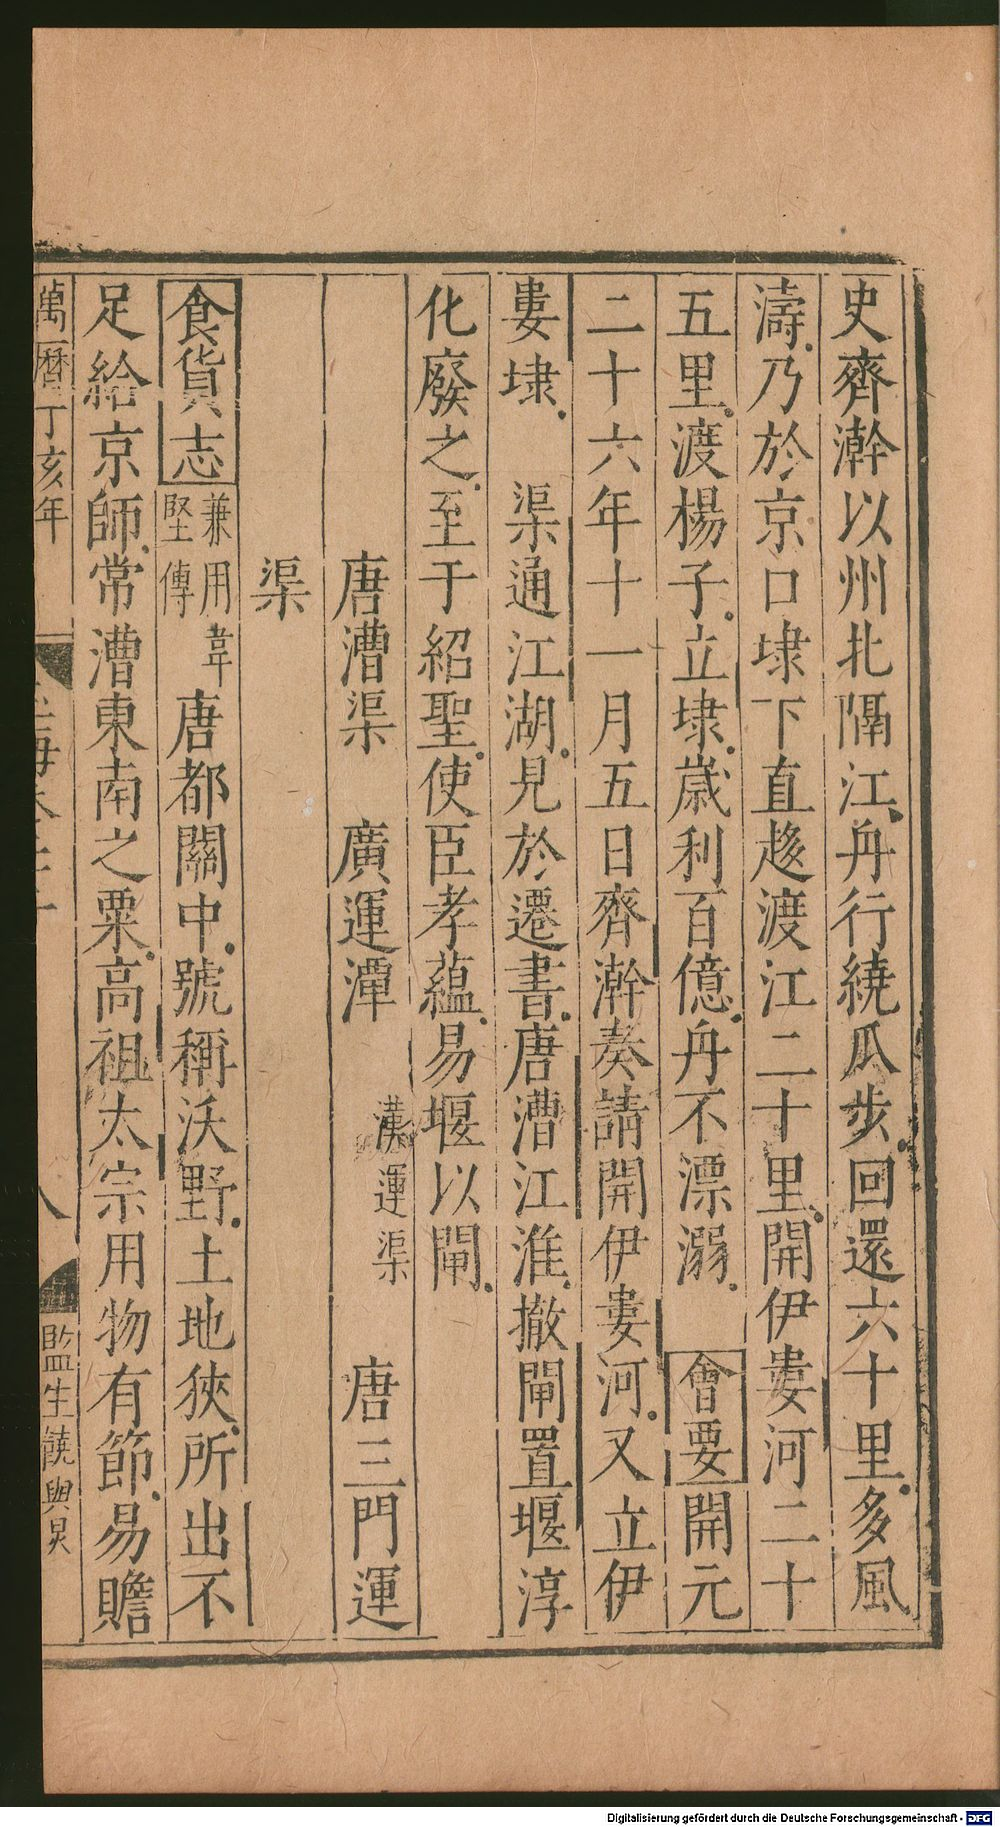 史齊澣以州北隔江舟行繞瓜步回還六十里多風
濤乃於京口埭下直趍渡江二十里開伊婁河二十
五里渡楊子立埭歲利百億舟不漂溺 會要開元
二十六年十一月五日齊澣奏請開伊婁河又立伊
婁埭 渠通江湖見於遷書唐漕江淮撤閘置堰淳
化廢之至于紹聖使臣孝蘊易堰以閘
唐漕渠 廣運潭 漢運渠 唐三門運
渠
食貨志 兼用韋堅傳 唐都關中號稱沃野土地狹所出不
足給京師常漕東南之粟高祖太宗用物有節易贍
萬曆丁亥年
八
監生饒與炅
Digitalisierung gefördert durch die Deutsche Forschungsgemeinschaft - DFG